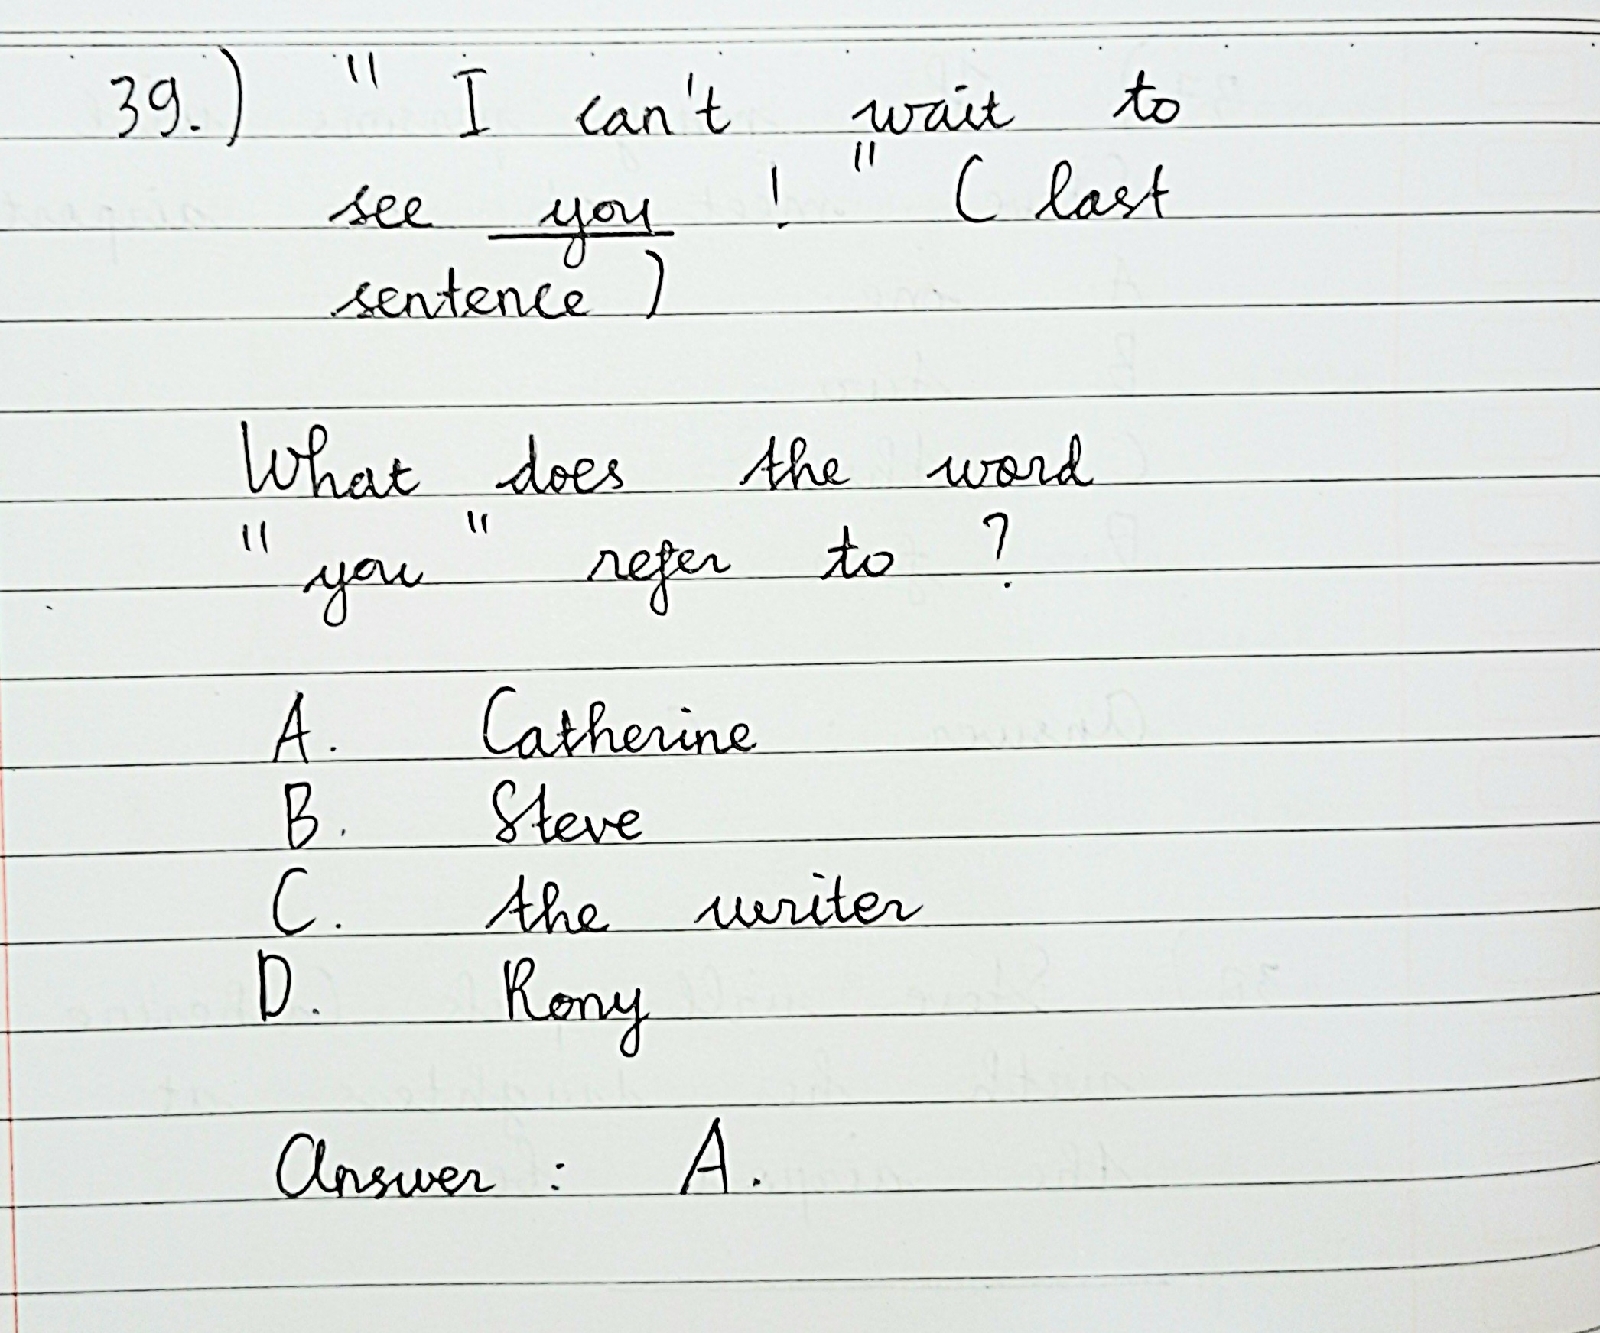 39.) " I can't wait to
see you ! " ( last
sentence )
What does the word
" you " refer to ?
A. Catherine
B. Steve
C. the writer
D. Rony
Answer : A.